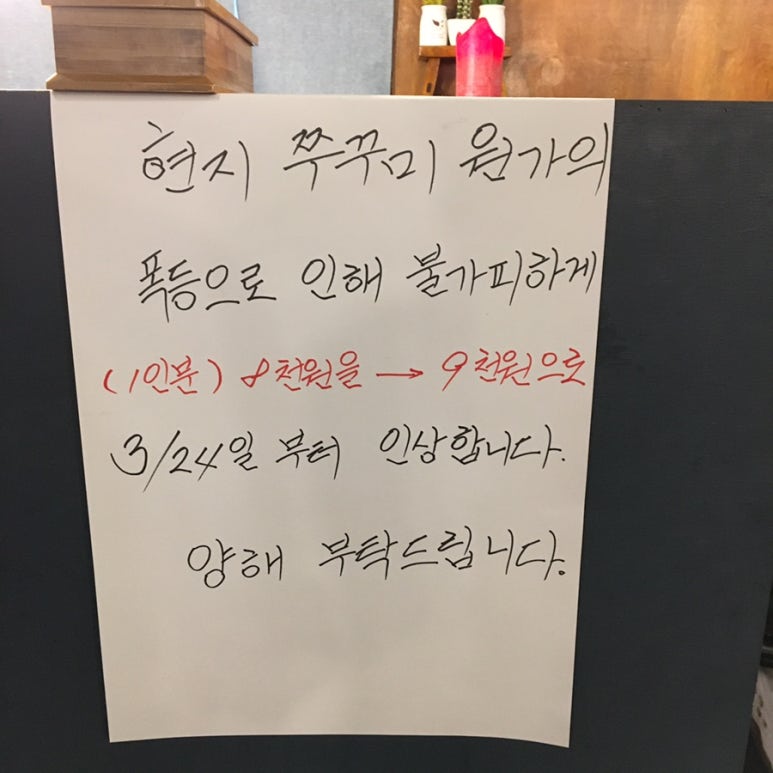 현지 쭈꾸미 원가의
폭등으로 인해 불가피하게
(1인분) 8천원을 → 9천원으로
3/24일 부터 인상합니다.
양해 부탁드립니다.